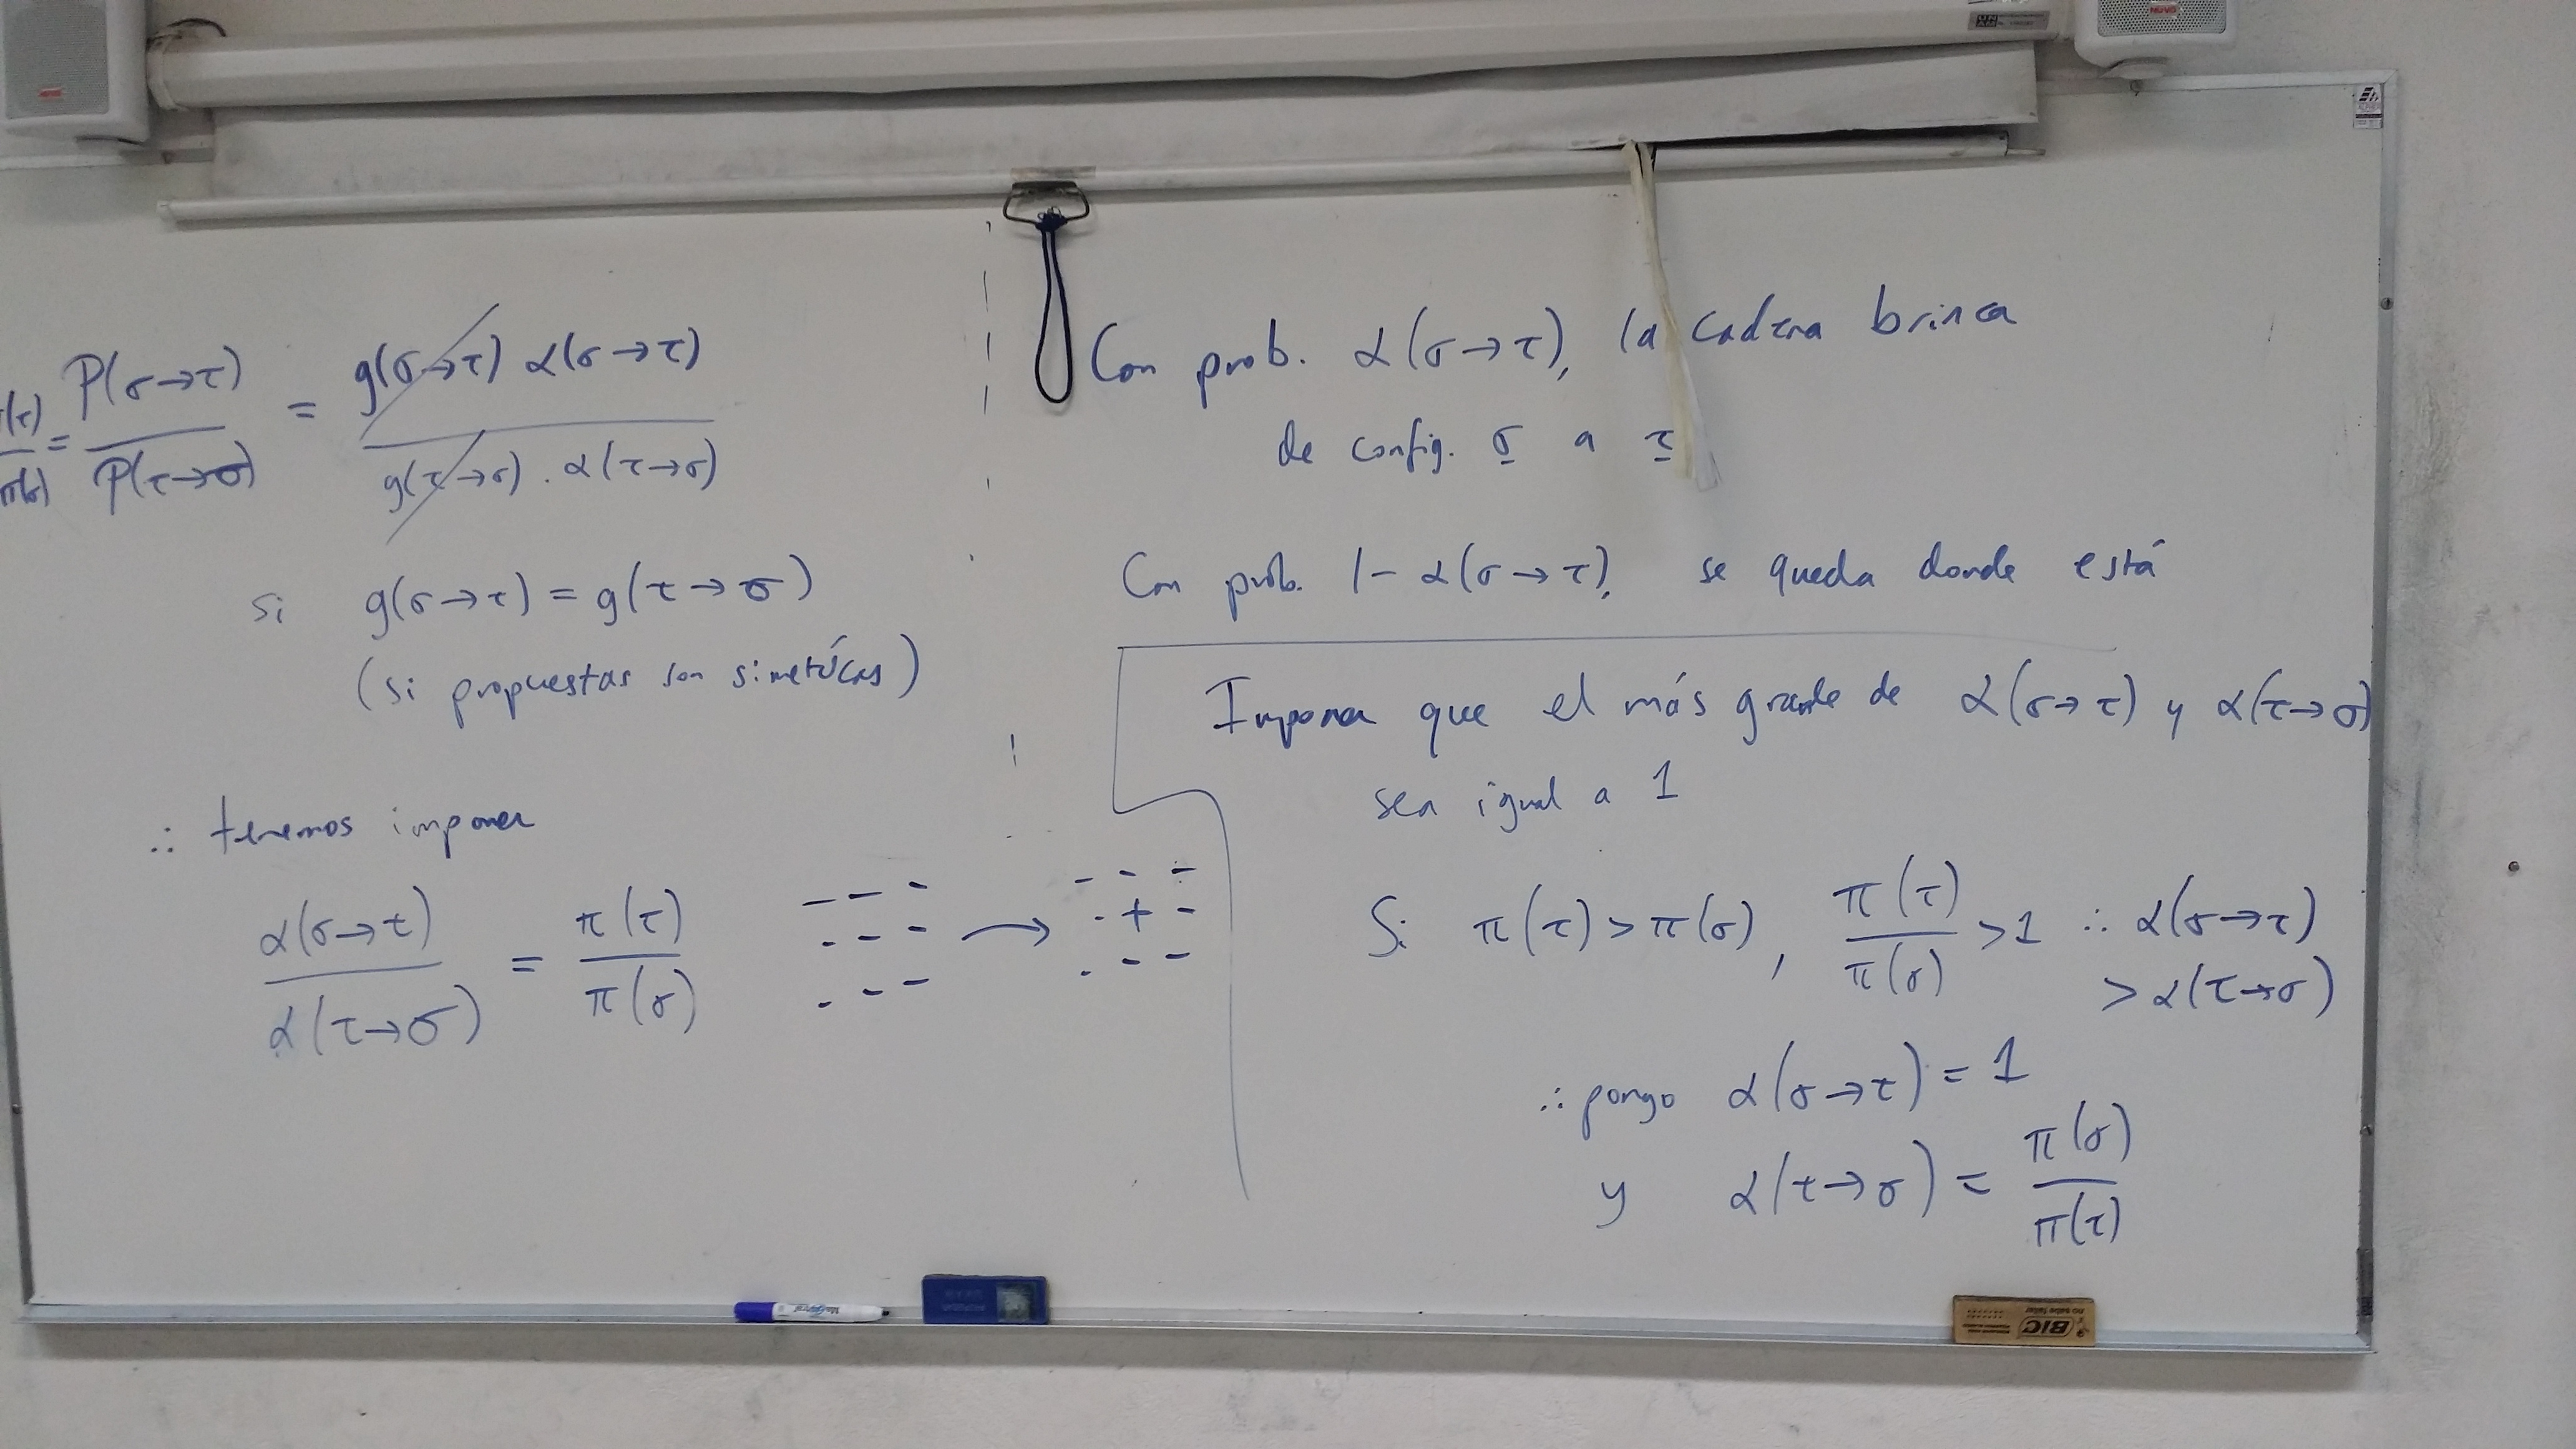 π(τ)/π(σ) = P(σ→τ)/P(τ→σ) = g(σ→τ) α(σ→τ) / g(τ→σ) . α(τ→σ)
si g(σ→τ) = g(τ→σ)
(si propuestas son simétricas)
∴ tenemos imponer
α(σ→τ)/α(τ→σ) = π(τ)/π(σ)
- - - → - - -
- - - - + -
- - - - - -
Con prob. α(σ→τ), la cadena brinca
de config. σ a τ
Con prob. 1 - α(σ→τ), se queda donde está
Imponer que el más grande de α(σ→τ) y α(τ→σ)
sea igual a 1
Si π(τ) > π(σ), π(τ)/π(σ) > 1 ∴ α(σ→τ)
> α(τ→σ)
∴ pongo α(σ→τ) = 1
y α(τ→σ) = π(σ)/π(τ)
BIC
no sabe fallar